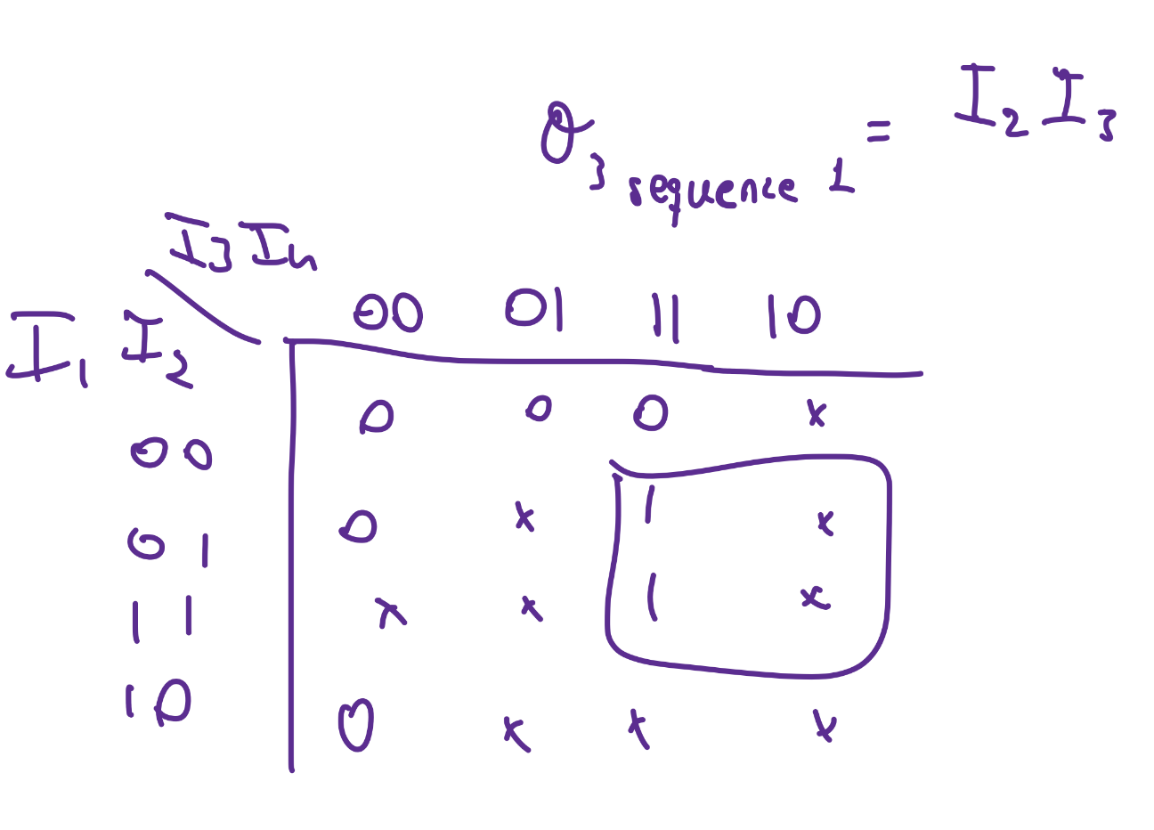 O₃ sequence 1 = I₂ I₃
I₃ I₄
I₁ I₂
00 01 11 10
00 0 0 0 x
01 0 x 1 x
11 x x 1 x
10 0 x x x